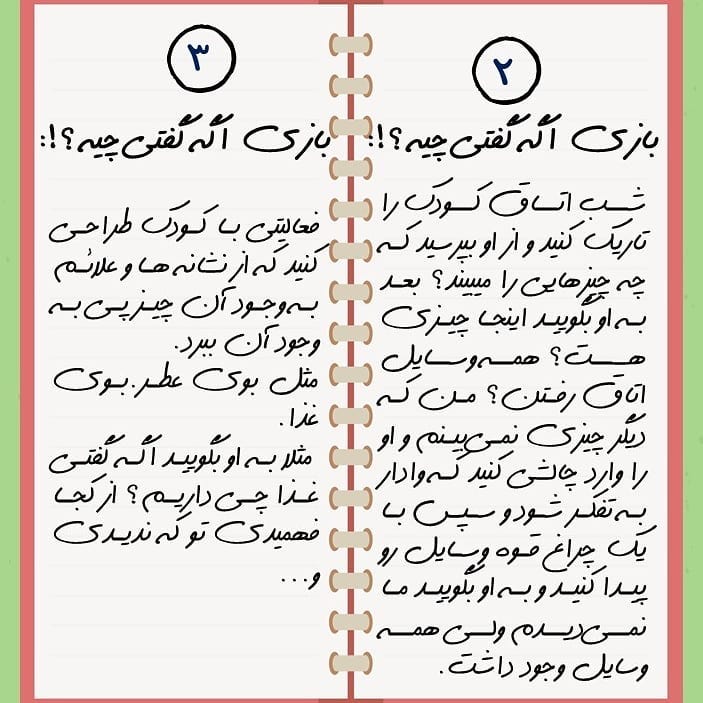 ۲
بازی اگه گفتی چیه؟!:
شب اتاق کودک را
تاریک کنید و از او بپرسید که
چه چیزهایی را میبیند؟ بعد
به او بگویید اینجا چیزی
هست؟ همه وسایل
اتاق رفتن؟ من که
دیگر چیزی نمی‌بینم و او
را وارد چالشی کنید که وادار
به تفکر شود و سپس با
یک چراغ قوه وسایل رو
پیدا کنید و به او بگویید ما
نمی‌دیدم ولی همه
وسایل وجود داشت.
۳
بازی اگه گفتی چیه؟!:
فعالیتی با کودک طراحی
کنید که از نشانه ها و علائم
به وجود آن چیز پی به
وجود آن ببرد.
مثل بوی عطر. بوی
غذا.
مثلا به او بگویید اگه گفتی
غذا چی داریم؟ از کجا
فهمیدی تو که ندیدی
و...